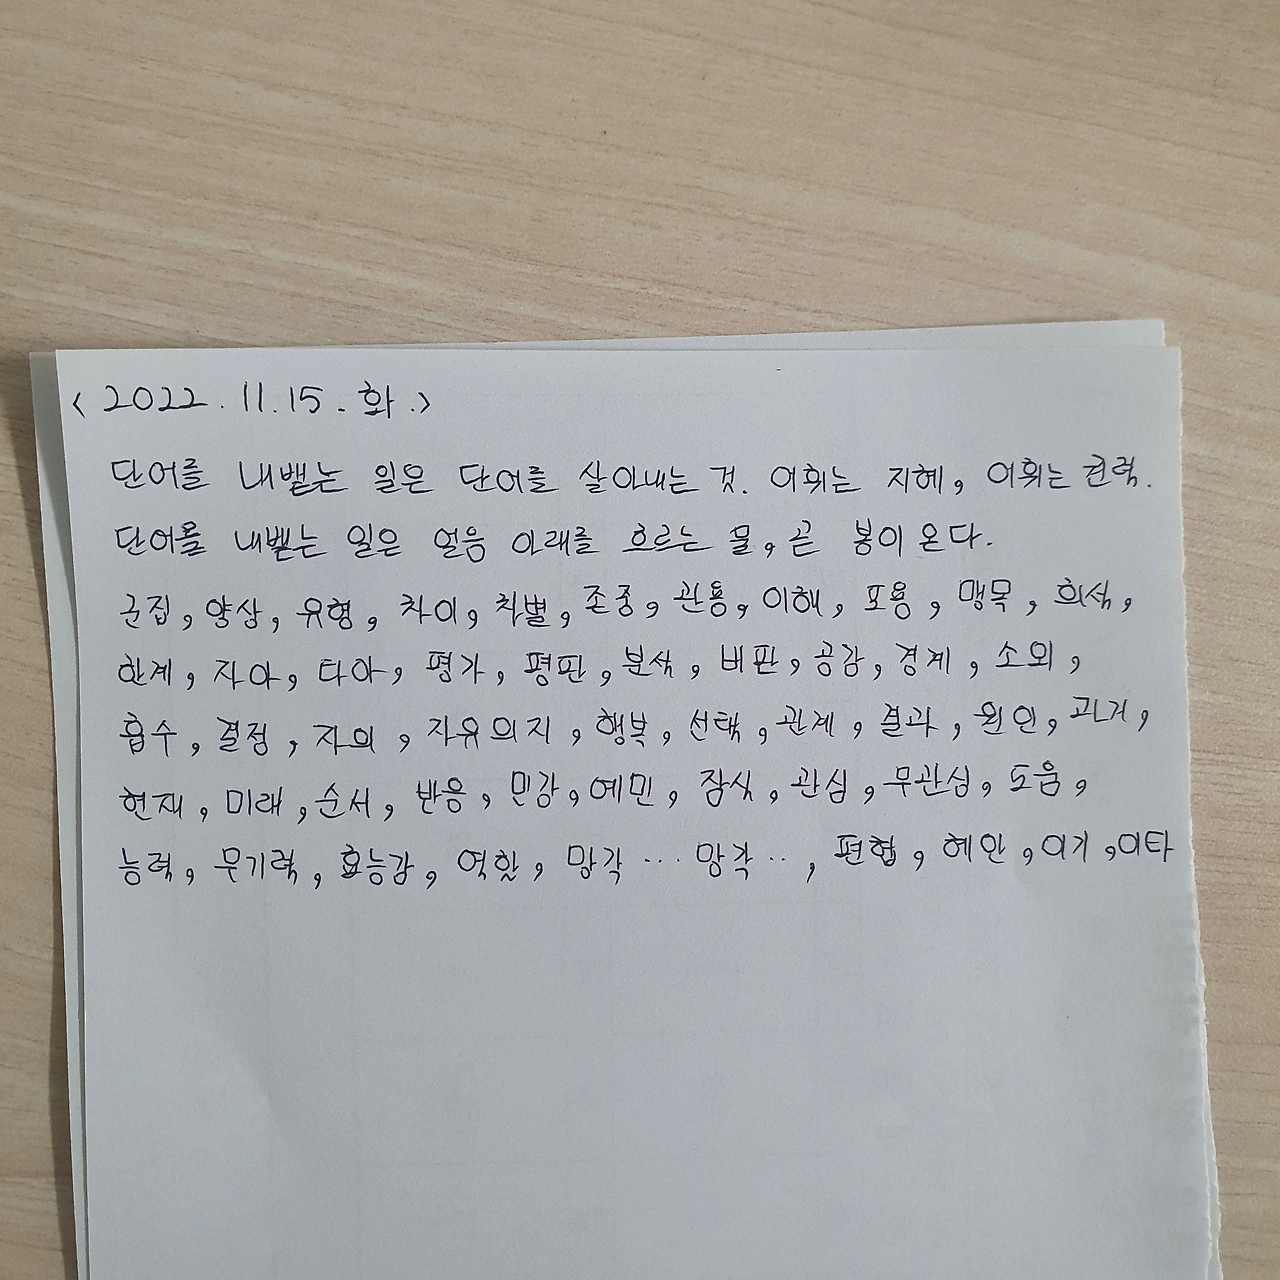 < 2022. 11. 15. 화.>
단어를 내뱉는 일은 단어를 살아내는 것. 어휘는 지혜, 어휘는 권력.
단어를 내뱉는 일은 얼음 아래를 흐르는 물, 곧 봄이 온다.
군집, 양상, 유형, 차이, 차별, 존중, 관용, 이해, 포용, 맹목, 희석,
한계, 자아, 타아, 평가, 평판, 분석, 비판, 공감, 경계, 소외,
흡수, 결정, 자의, 자유의지, 행복, 선택, 관계, 결과, 원인, 과거,
현재, 미래, 순서, 반응, 민감, 예민, 잠식, 관심, 무관심, 도움,
능력, 무기력, 효능감, 역할, 망각 ... 망각 .., 편협, 혜안, 이기, 이타